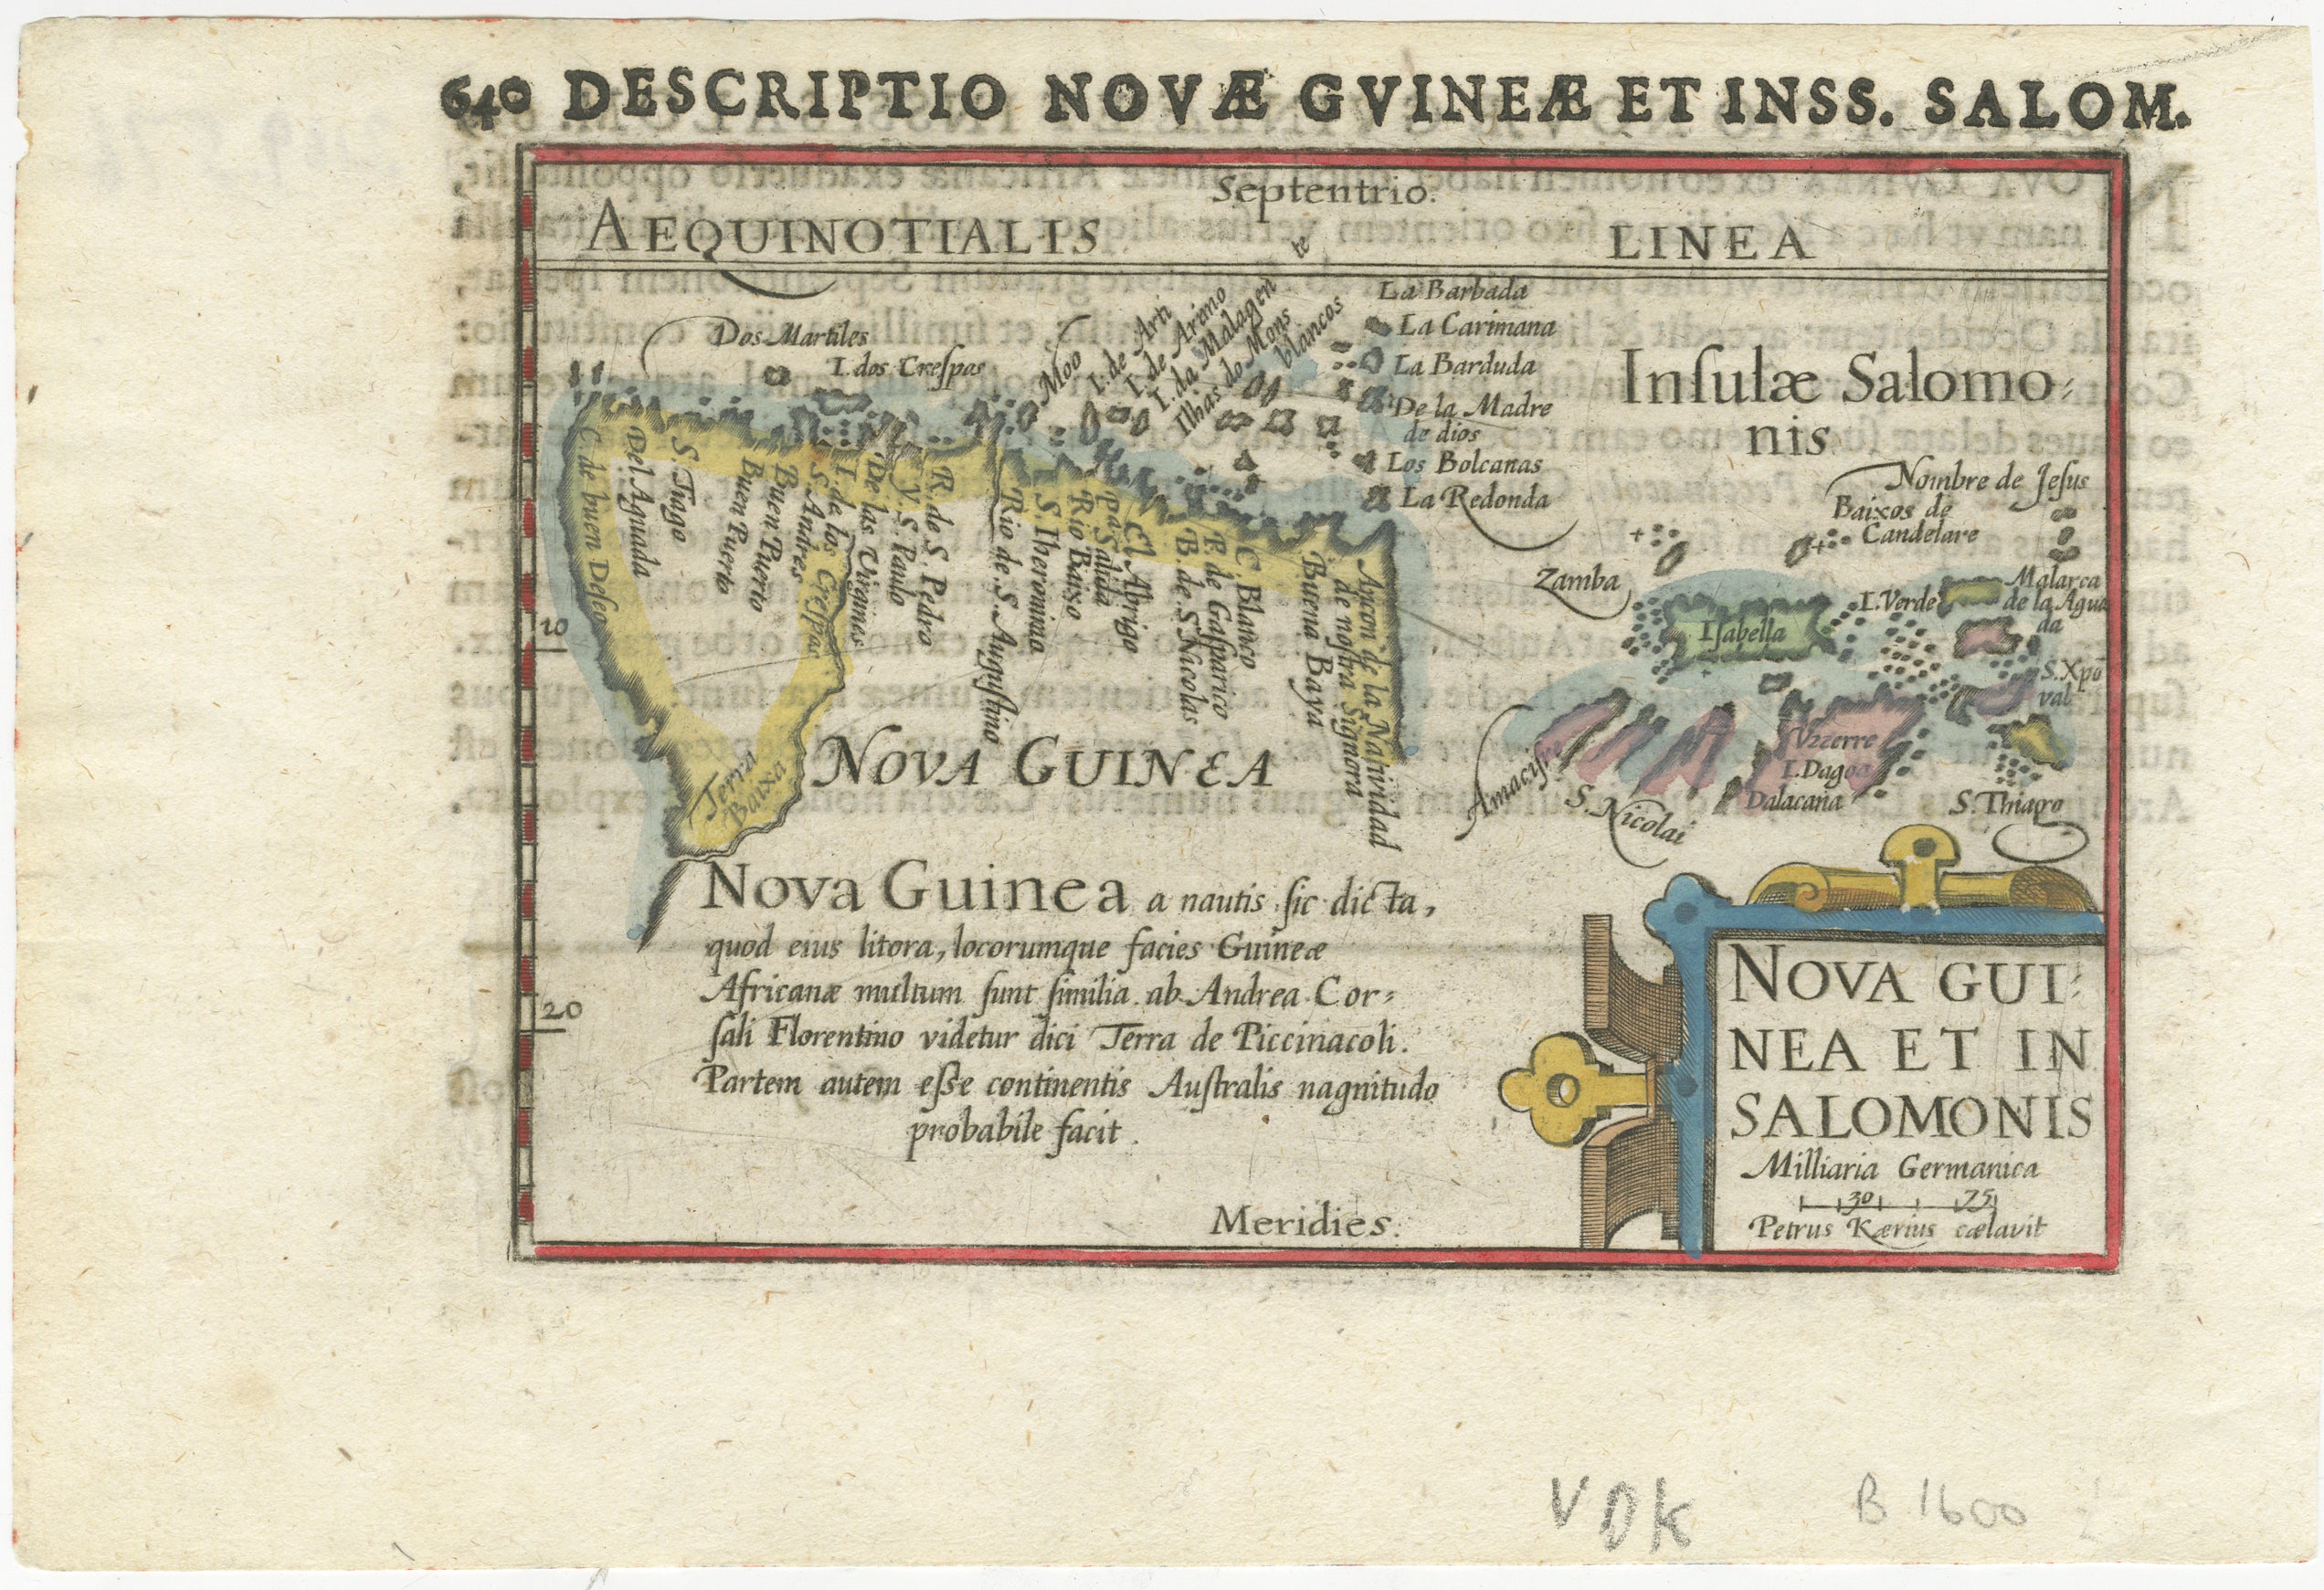 640 DESCRIPTIO NOVÆ GVINEÆ ET INSS. SALOM.
Septentrio.
AEQUINOTIALIS LINEA
Dos Martiles
I. dos Creſpos
Moo
I. de Arti
I. de Arimo
I. da Malagen
te
Ilhas do Mons
blancos
La Barbada
La Carimana
La Barduda
De la Madre
de dios
Los Bolcanas
La Redonda
Inſulæ Salomo⸗
nis
Nombre de Jeſus
Baixos de
Candelare
Zamba
Iſabella
I. Verde
Malarca
de la Agua
da
S. Xpõ
val
Vzzerre
I. Dagoa
Dalacana
Amacifre
S. Nicolai
S. Thiago
C. de buen Deſeo
Del Aguada
S. Tiago
Buen Puerto
Buen Puerto
S. Andres
I. de los Creſpos
De las Virgines
y S. Paulo
R. de S. Pedro
Rio de S. Auguſtino
S. Iheronimo
Rio Baixo
Pa Salida
El Abrigo
B. de S. Nicolas
P. de Gaſparico
C. Blanco
Buena Baya
Ancon de la Natiuidad
de noſtra Signora
10
Terra
Baixa
NOVA GUINEA
Nova Guinea a nautis ſic dicta,
quod eius litora, locorumque facies Guineæ
Africanæ multum ſunt ſimilia. ab Andrea Cor⸗
ſali Florentino videtur dici Terra de Piccinacoli.
Partem autem eſse continentis Auſtralis nagnitudo
probabile facit.
20
Meridies.
NOVA GUI⸗
NEA ET IN
SALOMONIS
Milliaria Germanica
30 75
Petrus Kærius cælavit
VDK B 1600